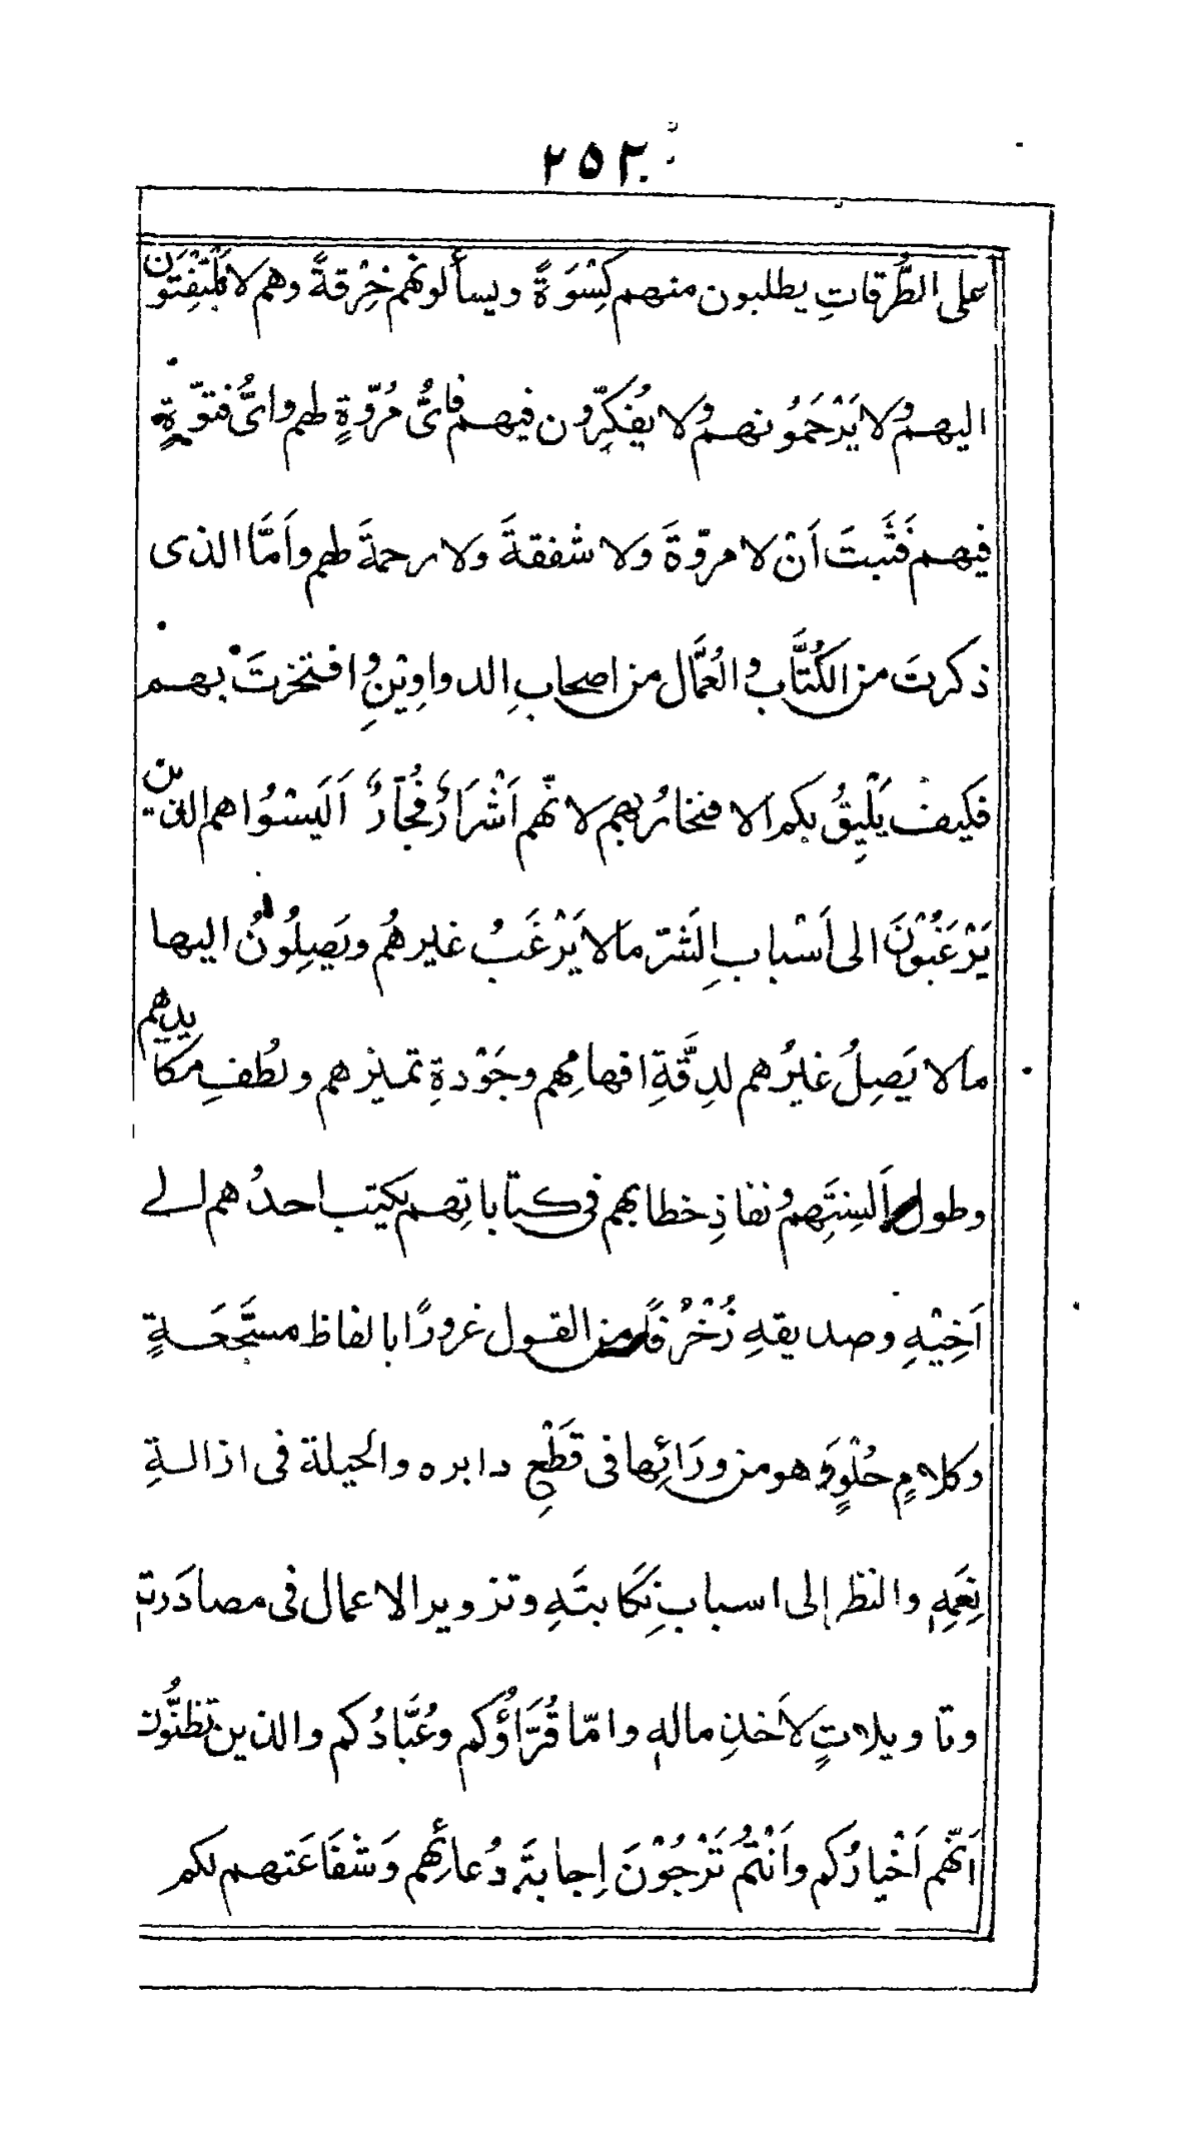 ٢٥٢
على الطُّرقاتِ يطلبون منهم كِسْوَةً ويسألونهم خِرْقةً وهم لا يَلْتَفِتون
اليهم ولا يَرْحَمُونهم ولا يُفكِّرون فيهم فاىُّ مُروّةٍ لهم واىُّ فتوّةٍ
فيهم فَثَبتَ اَنْ لا مروّةَ ولا شفقةَ ولا رحمةَ لهم واَمَّا الذى
ذكرتَ من الكُتَّاب والعُمَّال من اصحابِ الدواوِيْنِ وافتخرتَ بهم
فكيف يَلِيْقُ بكم الافتخارُ بهم لانّهم اَشْرَارٌ فُجّارٌ اَلَيسُوا هم الذين
يَرْغَبُوْنَ الى اَسْبابِ الشَرّ ما لا يَرْغَبُ غيرهُم ويَصِلُونَ اليها
ما لا يَصِلُ غيرُهم لدِقَّةِ افهامِهم وجَوْدةِ تميزهم ولُطفِ مكايدهم
وطول اَلسِنتِهم ونفاذِ خطابهم فى كتاباتِهم يكتب احدُهم الى
اَخِيْهِ وصديقهِ زُخْرُفًا من القول غرورًا بالفاظ مسجَّعَةٍ
وكلامٍ حُلْوٍ وهو من ورَائِها فى قَطْعِ دابره والحيلة فى ازالةِ
نِعَمِهٖ والنظر الى اسبابِ نِكَابتَهِ وتزوير الاعمال فى مصادَرتهٖ
وتاويلاتٍ لاَخذِ مالهٖ وامّا قُرَّاؤُكم وعُبَّادُكم والذين تظنُّون
اَنّهم اَخْيارُكم واَنْتُمْ تَرْجُوْنَ اِجابةَ دُعائِهم وَشفَاعَتهم لكم